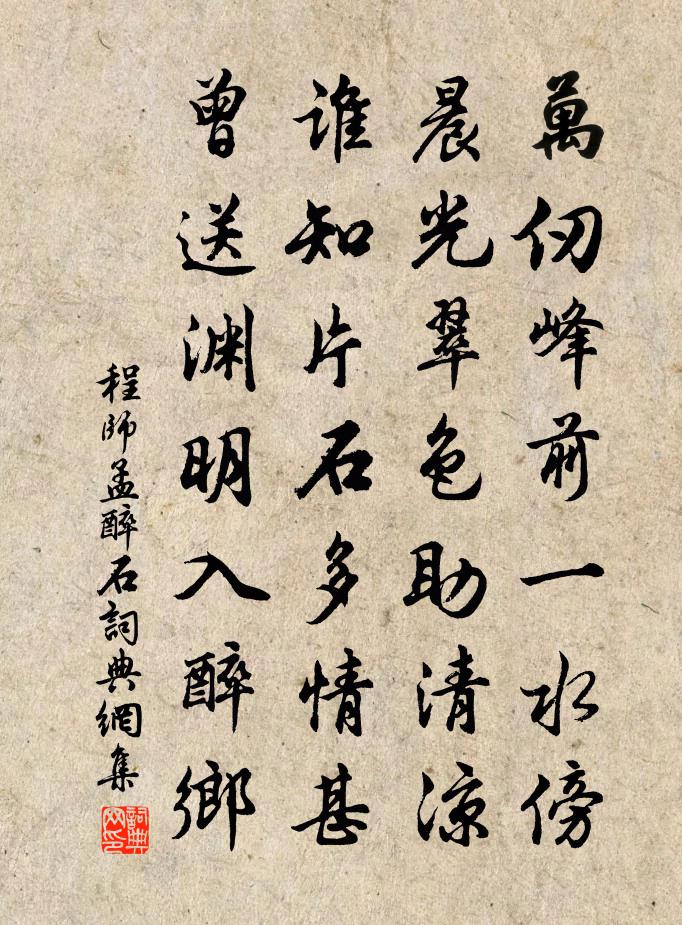 萬仞峰前一水傍
晨光翠色助清涼
誰知片石多情甚
曾送淵明入醉鄉
程師孟醉石詞典網集
詞典網印